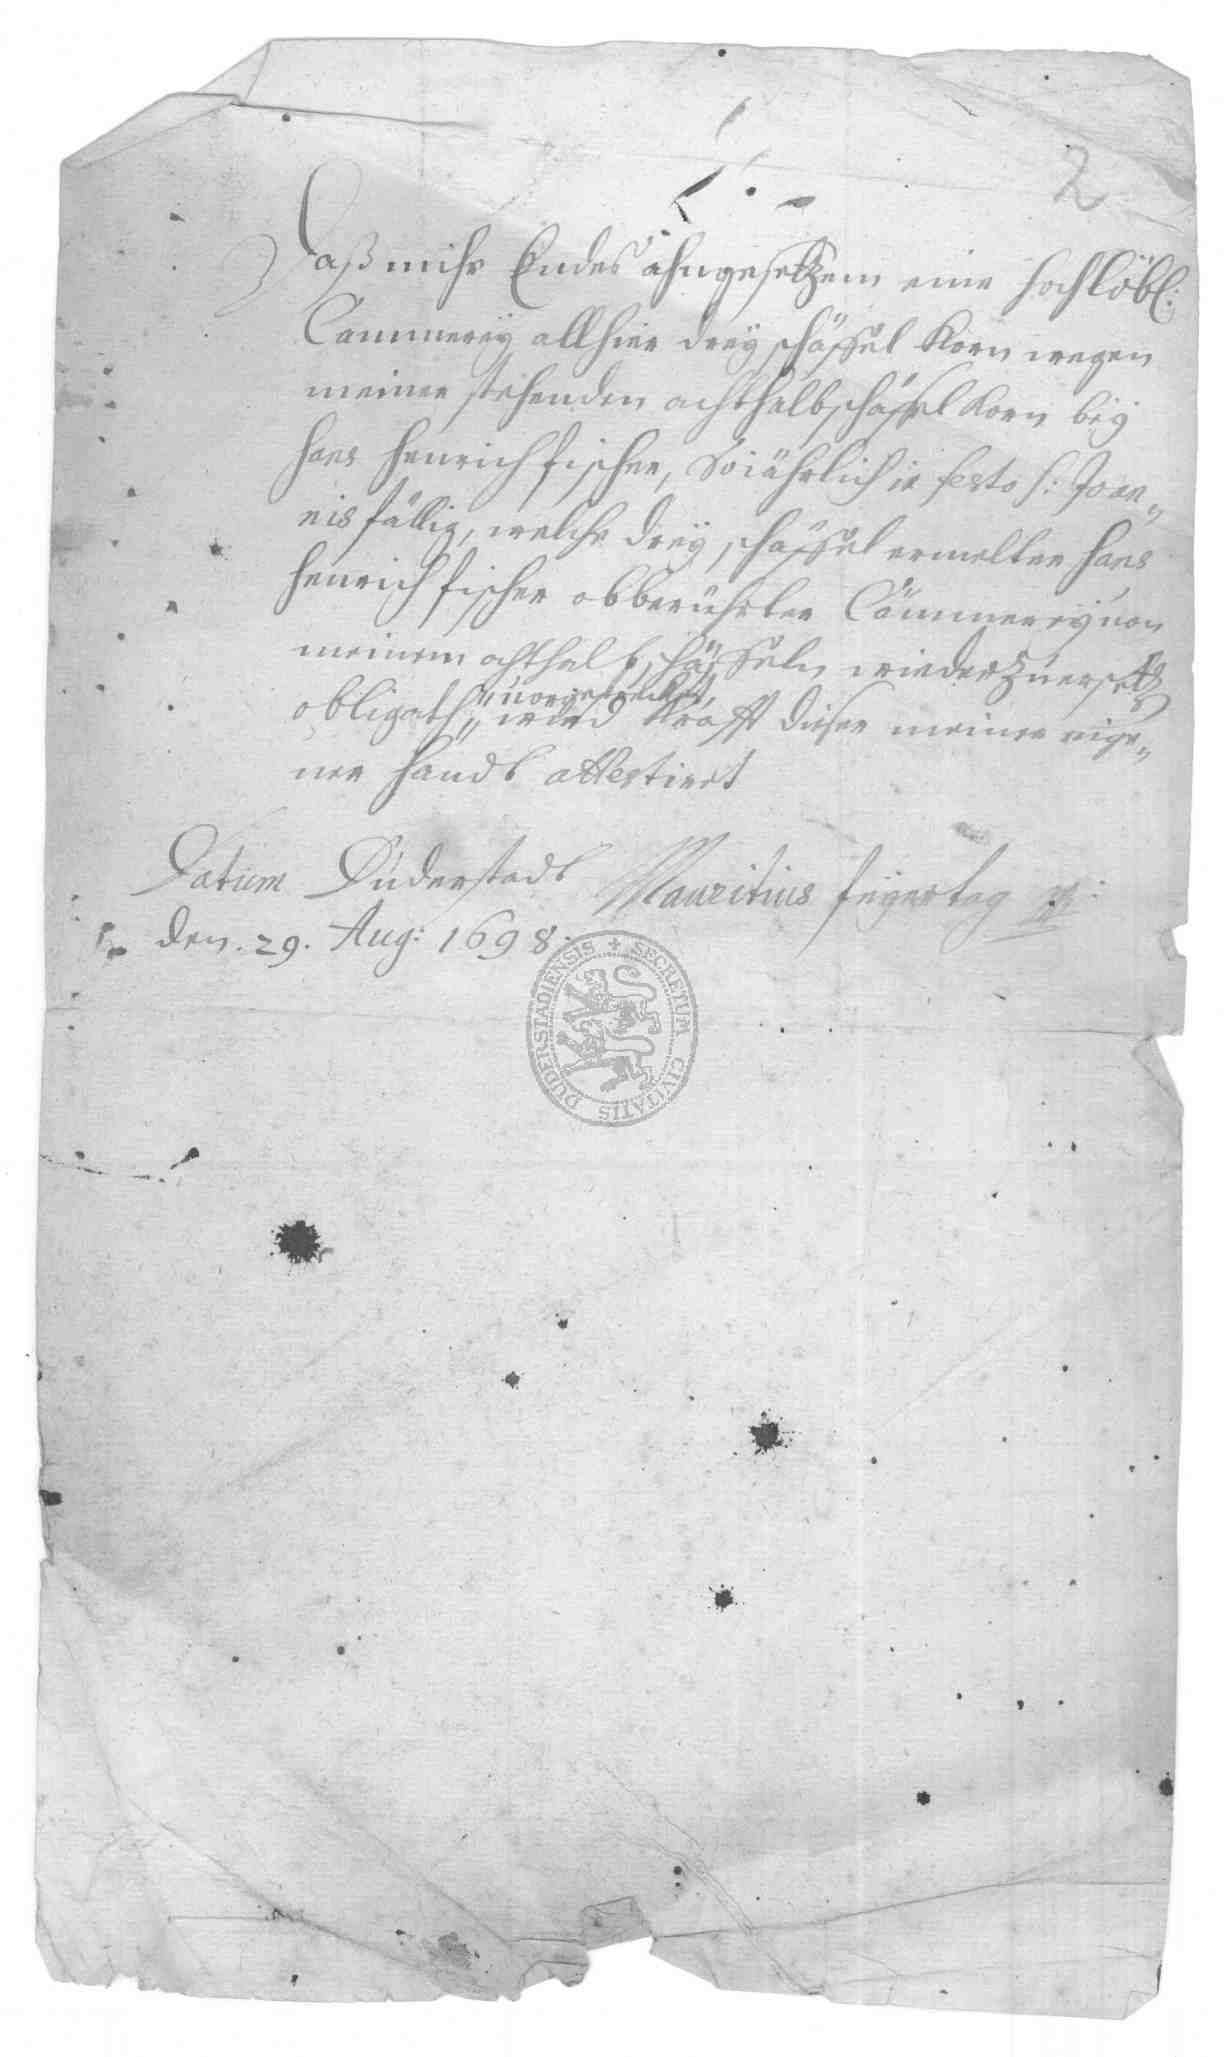 2
Daß mihr Endes ahngesetzem eine hochlöbl:
Cammerey allhier drey schäffel Korn wegen
meiner stehenden achthalb schäffel Korn bey
Hans Henrich Fischer, so iährlich in festo S: Joan„
nis fällig, welche drey schäffel ermelter Hans
Henrich Fischer obberührter Cämmerey von
meinem achthalb schäffeln wiederzuersetz
vorgestrecket,
obligath„ wird Krafft dieser meiner eige„
ner Handt attestiret
Datum Duderstadt Mauritius Feyertag
den. 29. Aug: 1698.
SECRETUM CIVITATIS DUDERSTADIENSIS